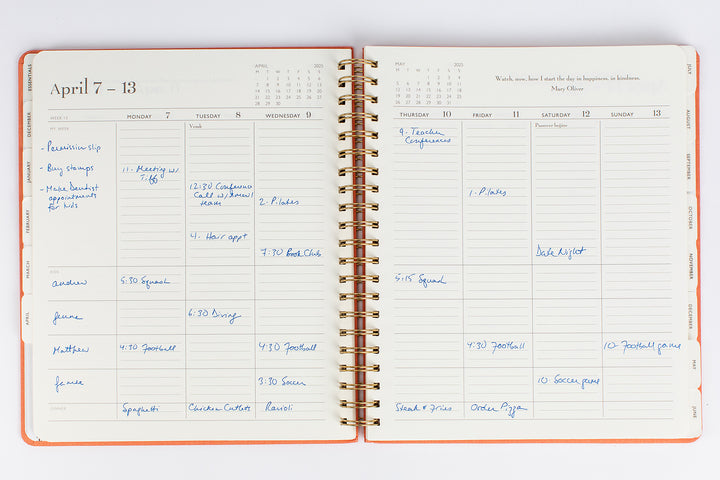 April 7 – 13
APRIL 2025
M T W T F S S
1 2 3 4 5 6
7 8 9 10 11 12 13
14 15 16 17 18 19 20
21 22 23 24 25 26 27
28 29 30
WEEK 15
MONDAY 7
TUESDAY 8
WEDNESDAY 9
MY WEEK
- Permission slip
- Buy stamps
- Make Dentist
appointments
for kids
11- Meeting w/
Tiff
12:30 Conference
Call w/
team
4- Hair appt
2- Pilates
7:30 Book Club
KIDS
andrew
5:30 Squash
6:30 Diving
Matthew
4:30 Football
4:30 Football
3:30 Soccer
DINNER
Spaghetti
Chicken Cutlets
Ravioli
MAY 2025
M T W T F S S
1 2 3 4
5 6 7 8 9 10 11
12 13 14 15 16 17 18
19 20 21 22 23 24 25
26 27 28 29 30 31
Watch, now, how I start the day in happiness, in kindness.
Mary Oliver
THURSDAY 10
FRIDAY 11
SATURDAY 12
SUNDAY 13
Passover begins
9- Teacher
Conferences
1- Pilates
Date Night
5:15 Squash
4:30 Football
10- Football game
10- Soccer game
Steak & Fries
Order Pizza
ESSENTIALS
DECEMBER
JANUARY
FEBRUARY
MARCH
APRIL
JULY
AUGUST
SEPTEMBER
OCTOBER
NOVEMBER
DECEMBER
MAY
JUNE